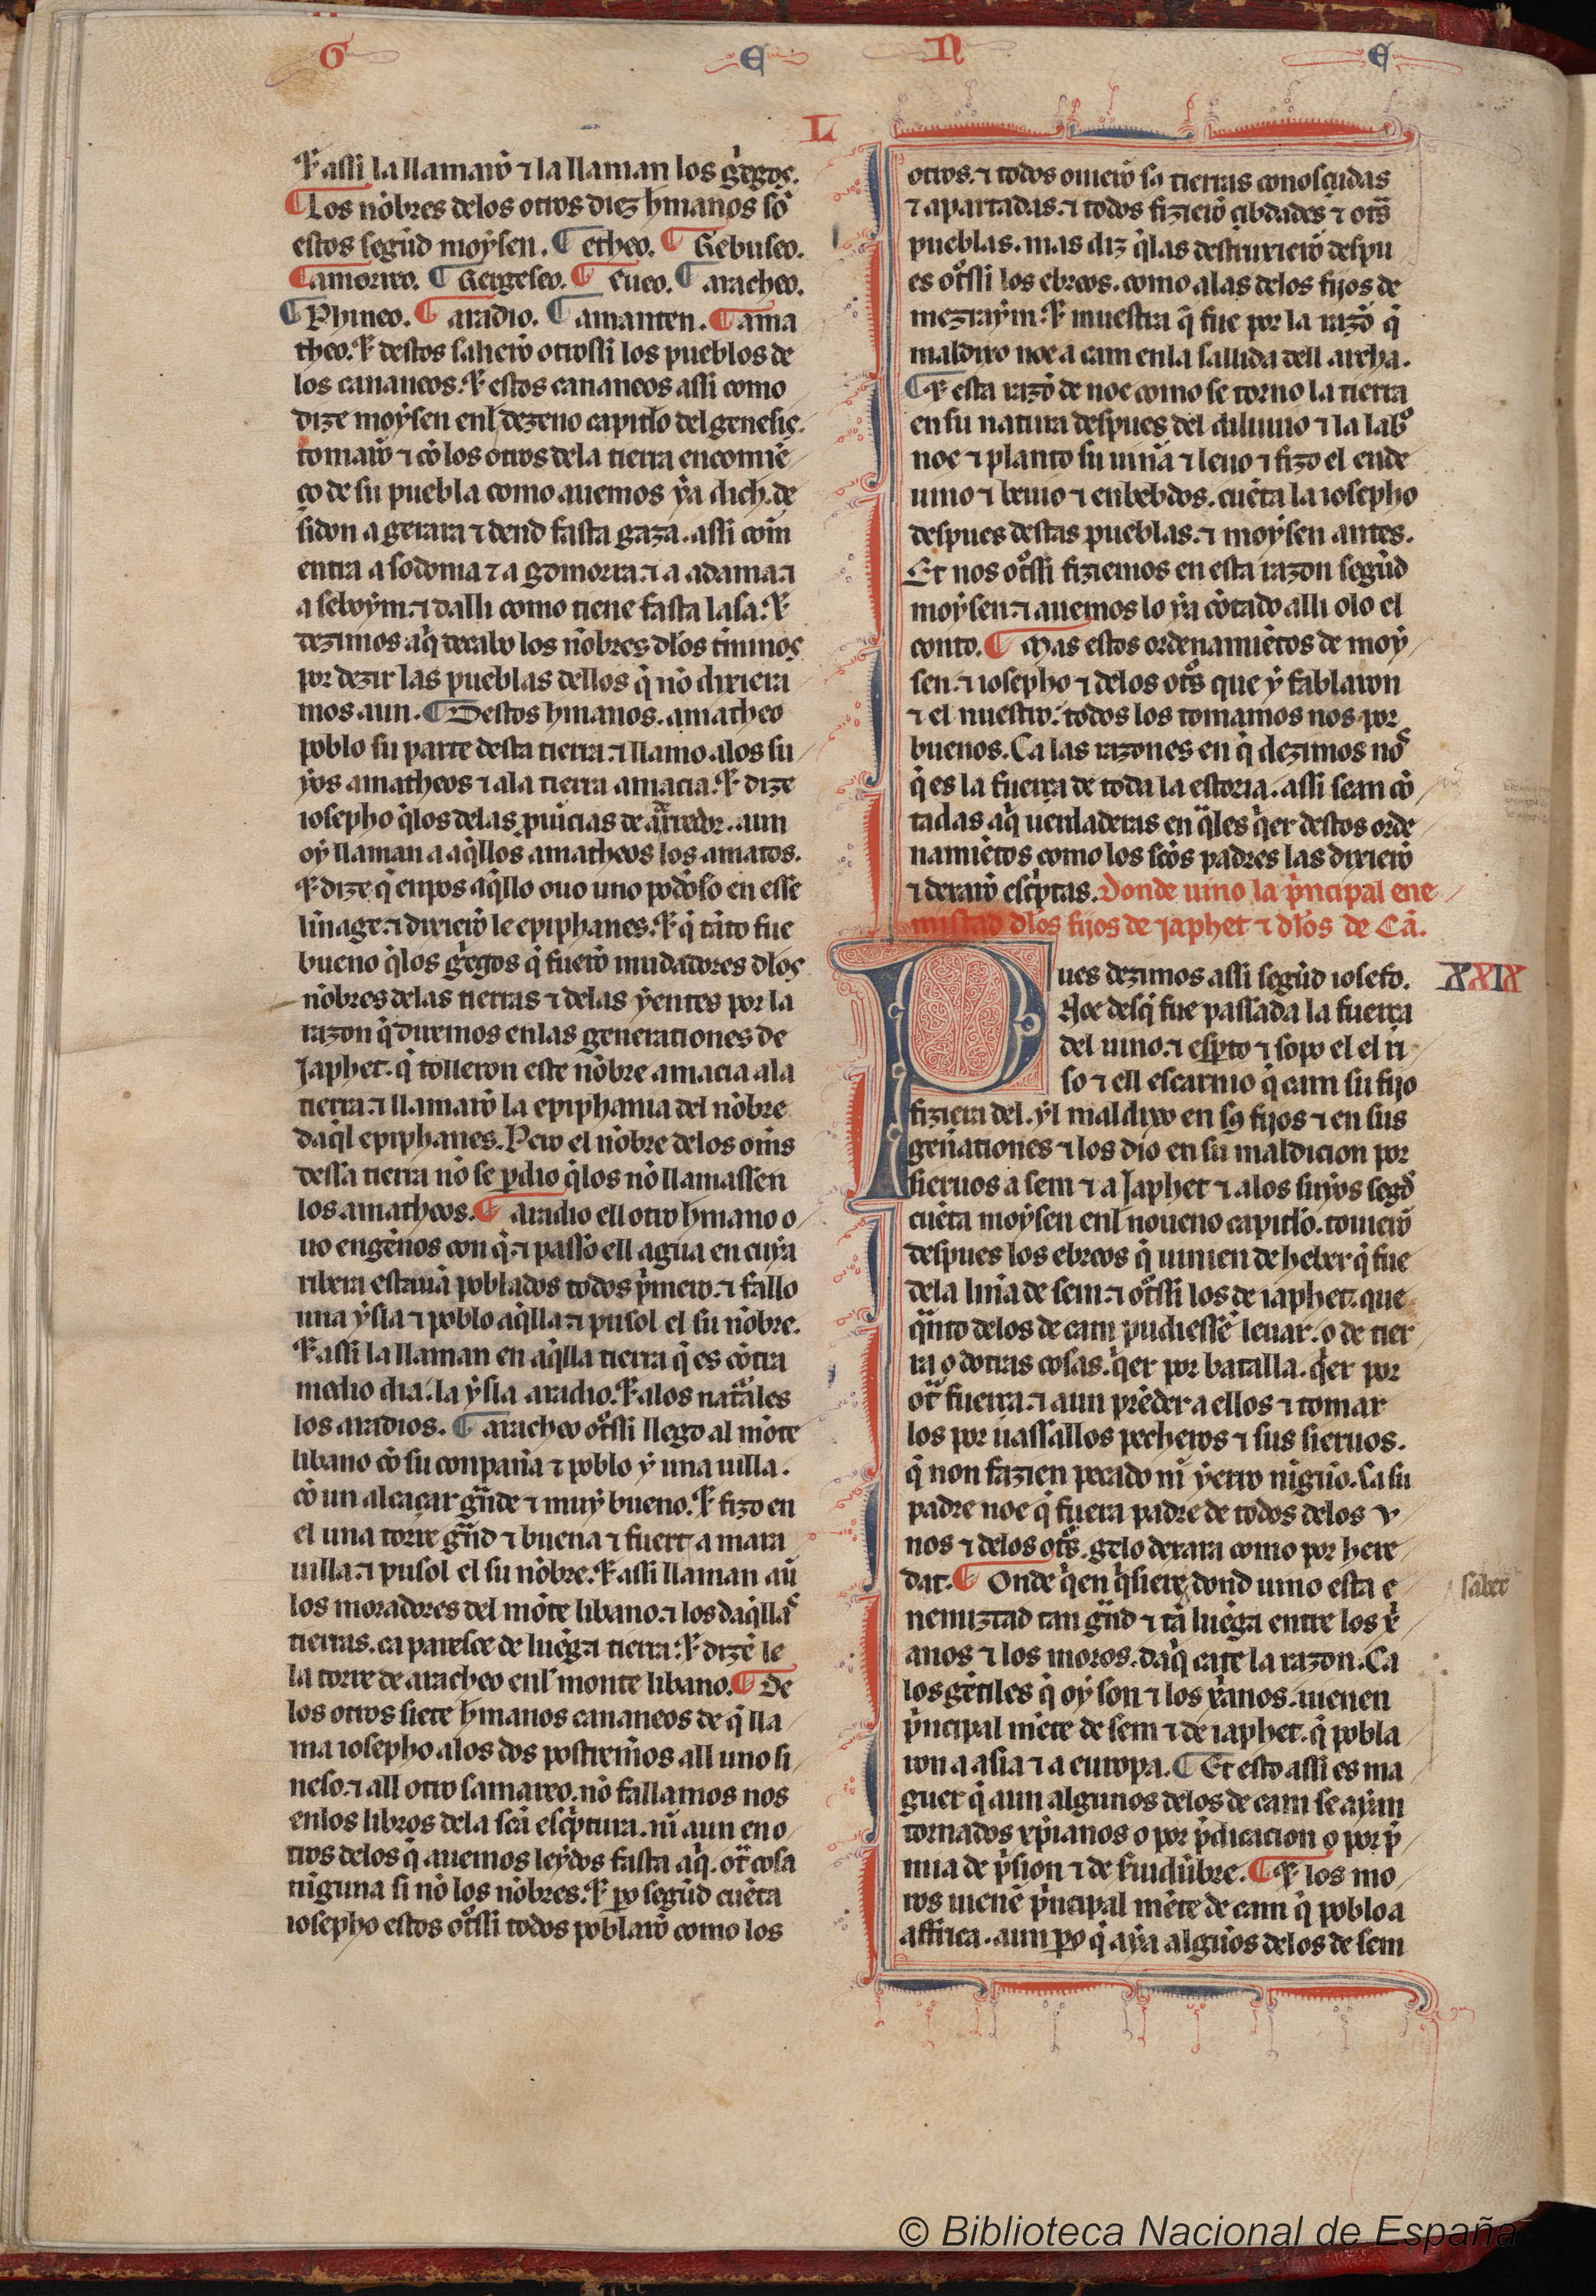 G E N E
L
⁊ assi la llamarõ ⁊ la llaman los gͥegos.
¶ Los nõbres delos otros diez h̃manos sõ
estos segũd moẏsen. ¶ etheo. ¶ Gebuseo.
¶ amorreo. ¶ Gergeseo. ¶ eueo. ¶ aracheo.
¶ Phineo. ¶ aradio. ¶ amanten. ¶ ama
theo. ⁊ destos salierõ otrossi los pueblos de
los cananeos. ⁊ estos cananeos assi como
dize moẏsen enl dezeno capitło del genesis.
tomarõ ⁊ cõ los otros dela tierra encomiẽ
ço de su puebla como auemos ẏa dich. de
sidon a gerara ⁊ dend fasta gaza. assi com
entra a sodoma ⁊ a gomorra. ⁊ a adama. ⁊
a seboẏm. ⁊ dalli como tiene fasta lasa. ⁊
dezimos aq̃ decabo los nõbres dłos t̃minos
por dezir las pueblas dellos q̃ nõ dixiera
mos aun. ¶ Destos h̃manos. amatheo
poblo su parte desta tierra. ⁊ llamo alos su
ẏos amatheos ⁊ ala tierra amacia. ⁊ dize
iosepho q̃los delas puĩcias de aͬrredor. aun
oẏ llaman a aq̃llos amatheos los amatos.
⁊ dize q̃ enpos aq̃llo ouo uno podõso en esse
linage. ⁊ dixierõ le epiphanes. ⁊ q̃ tãto fue
bueno q̃los gͥegos q̃ fuerõ mudadores dłos
nõbres delas tierras ⁊ delas ẏentes por la
razon q̃ diremos enlas generationes de
Japhet. q̃ tolleron este nõbre amacia ala
tierra. ⁊ llamarõ la epiphania del nõbre
daq̃l epiphanes. Pero el nõbre delos om̃s
dessa tierra nõ se ꝑdio q̃los nõ llamassen
los amatheos. ¶ aradio ell otro h̃mano o
uo engẽnos con q̃. ⁊ passo ell agua en cuẏa
ribera estauã poblados todos pͥmero. ⁊ fallo
una ẏsla ⁊ poblo aq̃lla. ⁊ pusol el su nõbre.
⁊ assi la llaman en aq̃lla tierra q̃ es cõtra
medio dia. la ẏsla aradio. ⁊ alos natᵃales
los aradios. ¶ aracheo otͦssi llego al mõte
libano cõ su conpaña ⁊ poblo ẏ una uilla.
cõ un alcaçar gᵃnde ⁊ muẏ bueno. ⁊ fizo en
el una torre gᵃnd ⁊ buena ⁊ fuert a mara
uilla. ⁊ pusol el su nõbre. ⁊ assi llaman aũ
los moradores del mõte libano. ⁊ los daq̃llaˢ
tierras. ca paresce de luẽga tierra. ⁊ dizẽ le
la torre de aracheo enl monte libano. ¶ De
los otros siete h̃manos cananeos de q̃ lla
ma iosepho alos dos postrem̃os all uno si
neso. ⁊ all otro samareo. nõ fallamos nos
enlos libros dela scã escͥptura. nĩ aun en o
tros delos q̃ auemos leẏdos fasta aq̃. otᵃ cosa
nĩguna si nõ los nõbres. ⁊ ꝑo segũd cuẽta
iosepho estos otͦssi todos poblarõ como los
otros. ⁊ todos ouierõ sꝯ tierras conosçudas
⁊ apartadas. ⁊ todos fizierõ çibdades ⁊ otᵃs
pueblas. mas diz q̃las destruxierõ despu
es otͦssi los ebreos. como alas delos fijos de
mezraẏm. ⁊ muestra q̃ fue por la razõ q̃
maldixo noe a cam enla sallida dell archa.
¶ ⁊ esta razõ de noe como se torno la tierra
en su natura despues del diluuio ⁊ la labͦ
noe ⁊ planto su uiña ⁊ leuo ⁊ fizo el ende
uino ⁊ beuio ⁊ enbebdos. cuẽta la iosepho
despues destas pueblas. ⁊ moẏsen antes.
Et nos otͦssi fiziemos en esta razon segũd
moẏsen. ⁊ auemos lo ẏa cõtado alli o lo el
conto. ¶ Mas estos ordenamiẽtos de moẏ
sen. ⁊ iosepho ⁊ delos otͦs que ẏ fablaron
⁊ el nuestro. todos los tomamos nos por
buenos. Ca las razones en q̃ dezimos nͦs
q̃ es la fuerça de toda la estoria. assi sean cõ
tadas aq̃ uerdaderas en q̃les q̃er destos orde
namiẽtos como los scõs padres las dixierõ
⁊ dexarõ escͥptas. Donde uino la pͥncipal ene
mistad dłos fijos de japhet ⁊ dłos de Cã.
XXIX
Pues dezimos assi segũd iosefo.
Noe desq̃ fue passada la fuerça
del uino. ⁊ espͭo ⁊ sopo el el ri
so ⁊ ell escarnio q̃ cam su fijo
fiziera del. ẏl maldixo en sꝯ fijos ⁊ en sus
gen̄ationes ⁊ los dio en su maldicion por
sieruos a sem ⁊ a Japhet ⁊ alos suẏos segͩ
cuẽta moẏsen enl noueno capitło. touierõ
despues los ebreos q̃ uinien de heber q̃ fue
dela liña de sem. ⁊ otͦssi los de iaphet. que
qᵃnto delos de cam pudiessẽ leuar. o de tier
ra o dotras cosas. q̃er por batalla. q̃er por
otᵃ fuerça. ⁊ aun prẽder a ellos ⁊ tomar
los por uassallos pecheros ⁊ sus sieruos.
q̃ non fazien pecado nĩ ẏerro nĩgũo. Ca su
padre noe q̃ fuera padre de todos delos v
nos ⁊ delos otͦs. gelo dexara como por here
dat. ¶ Onde q̃en q̃siere dond uino esta e
saber
nemiztad tan gᵃnd ⁊ tã luẽga entre los xͥ
anos ⁊ los moros. daq̃ cate la razon. Ca
los gẽtiles q̃ oẏ son ⁊ los xͥanos. uienen
pͥncipal miẽte de sem ⁊ de iaphet. q̃ pobla
ron a asia ⁊ a europa. ¶ Et esto assi es ma
guer q̃ aun algunos delos de cam se aẏan
tornados xp̃ianos o por p̃dicacion o por p̃
mia de pͥsion ⁊ de seruidũbre. ¶ ⁊ los mo
ros uienẽ pͥncipal miẽte de cam q̃ poblo a
affrica. aun ꝑo q̃ aẏa algũos delos de sem
© Biblioteca Nacional de España